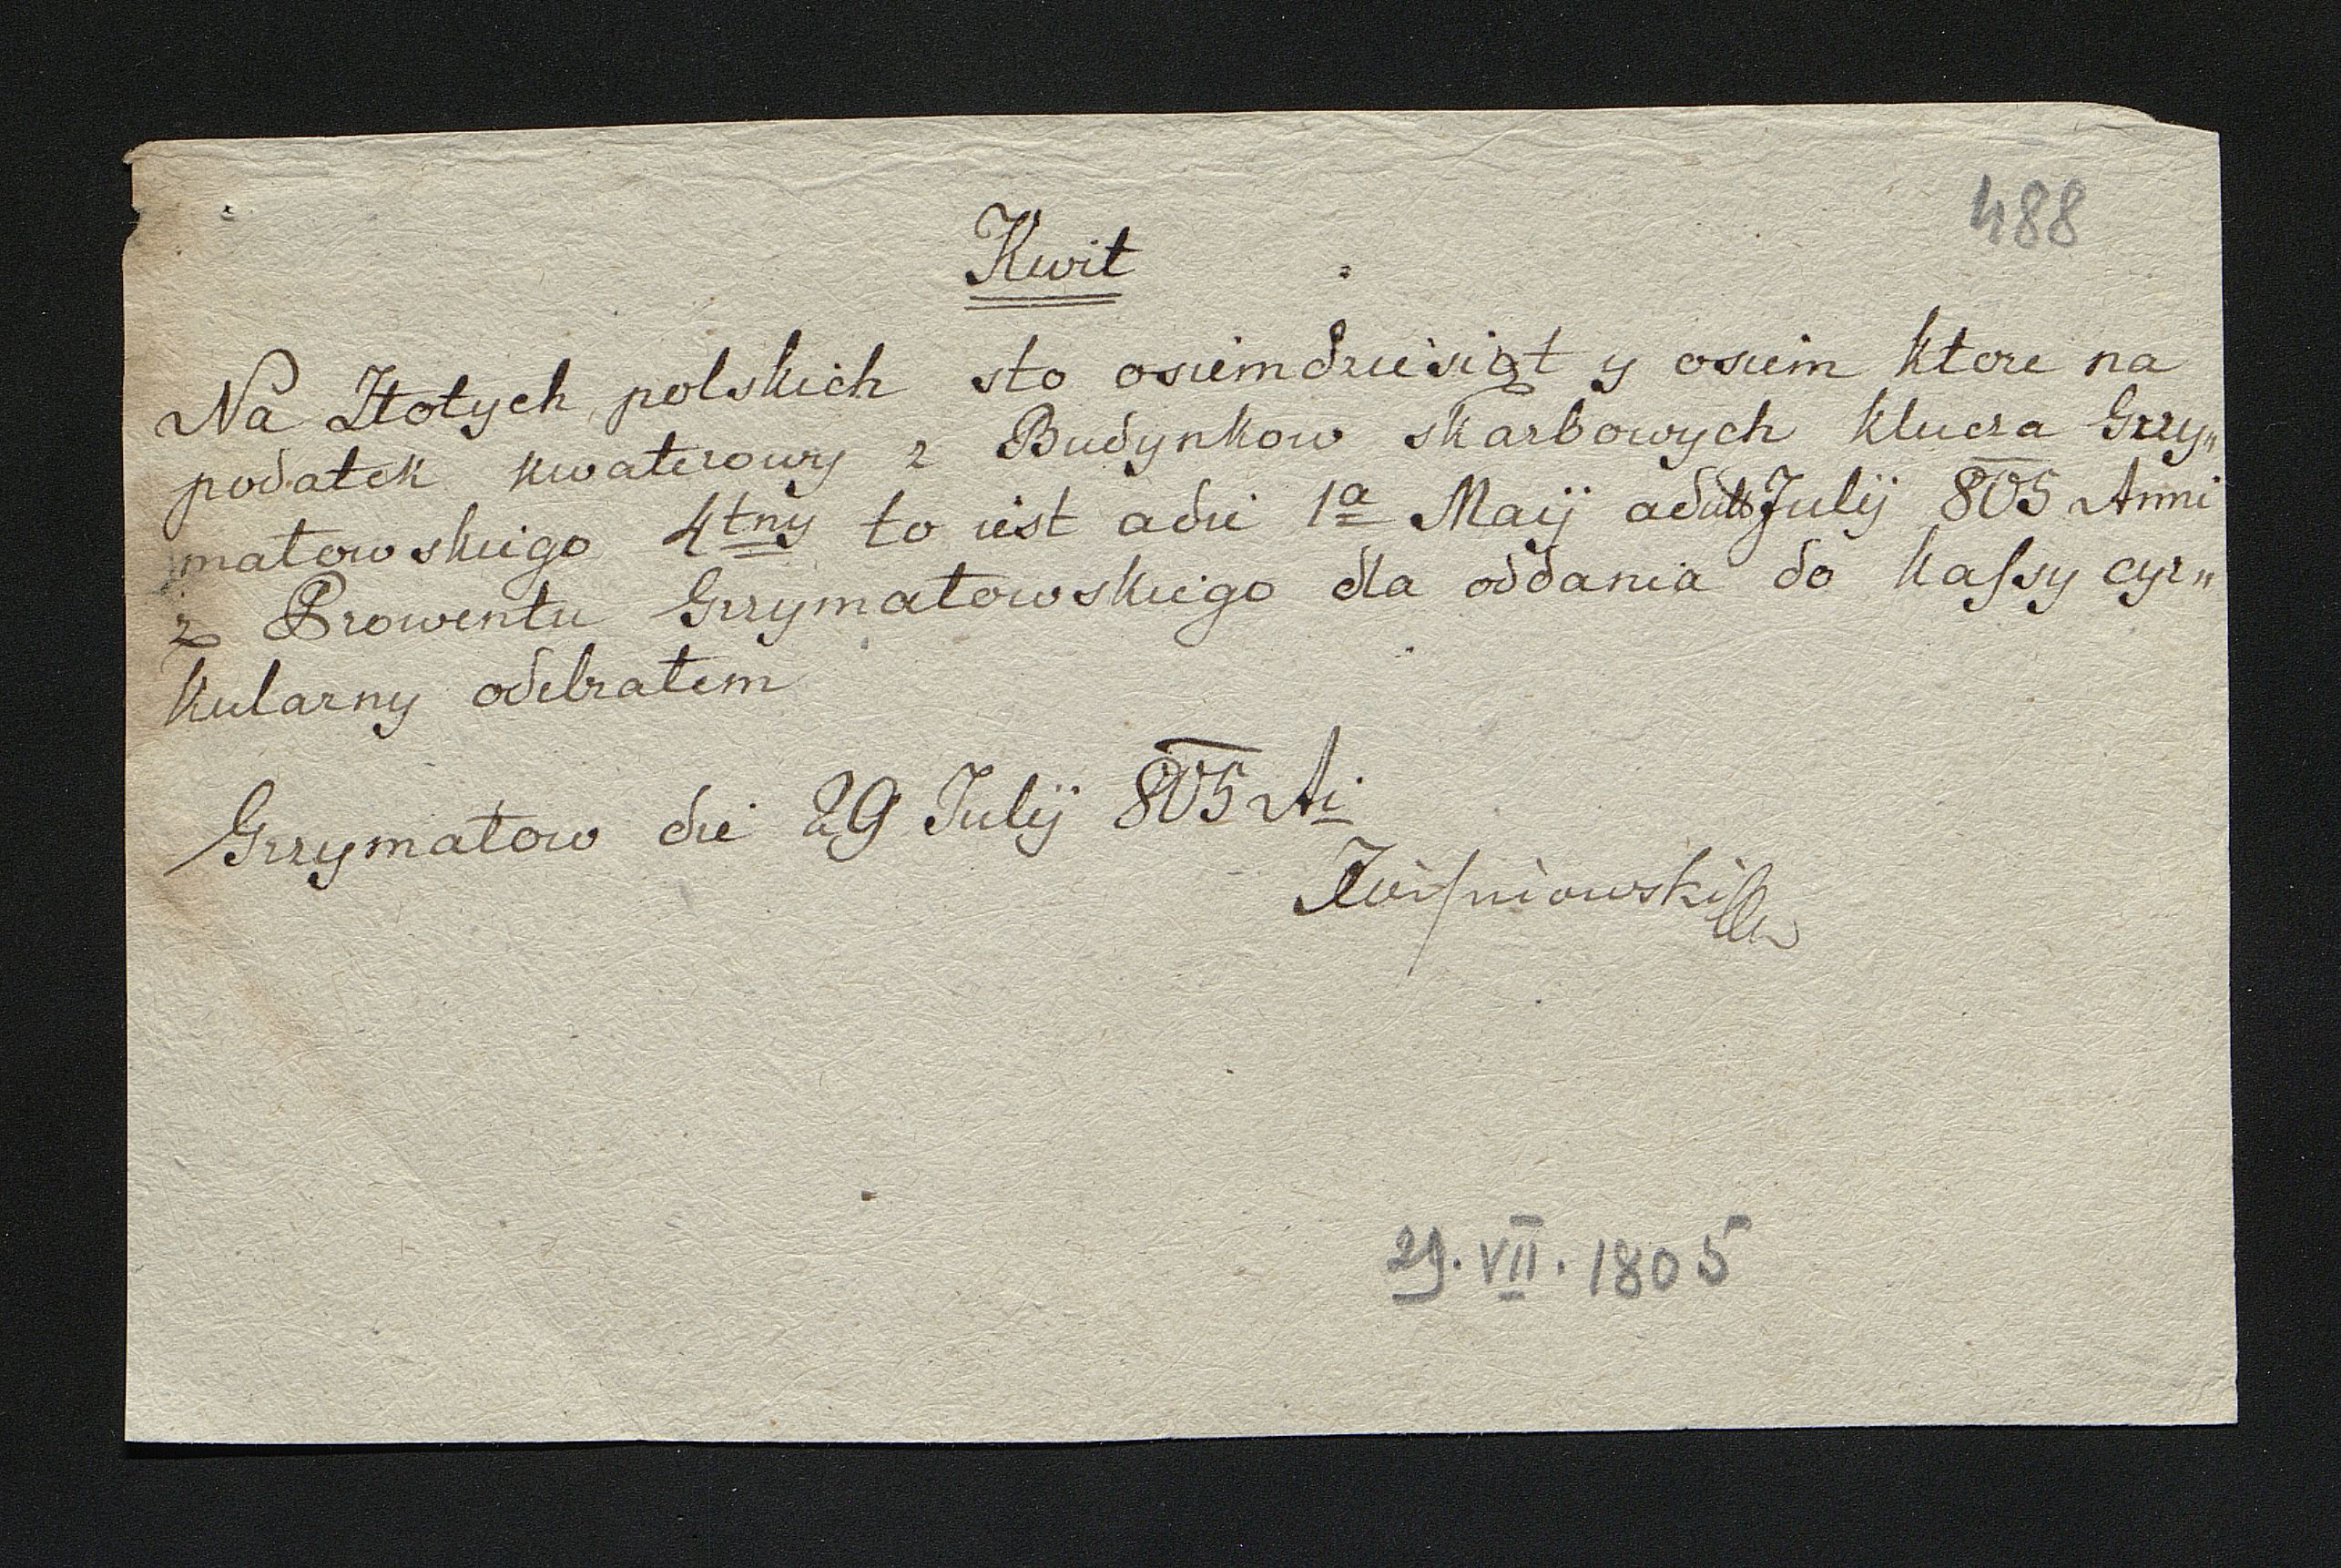 488
Kwit
Na Złotych polskich sto osiemdziesiąt y osiem ktore na
podatek kwaterowy z Budynkow skarbowych klucza Grzy„
małowskiego 4tny to iest a die 1a Maij ad ult Julij 805 Anni
z Prowentu Grzymałowskiego dla oddania do kassy cyr„
kularny odebrałem
Grzymałow die 29 Julij 805 Ai
29. VII. 1805